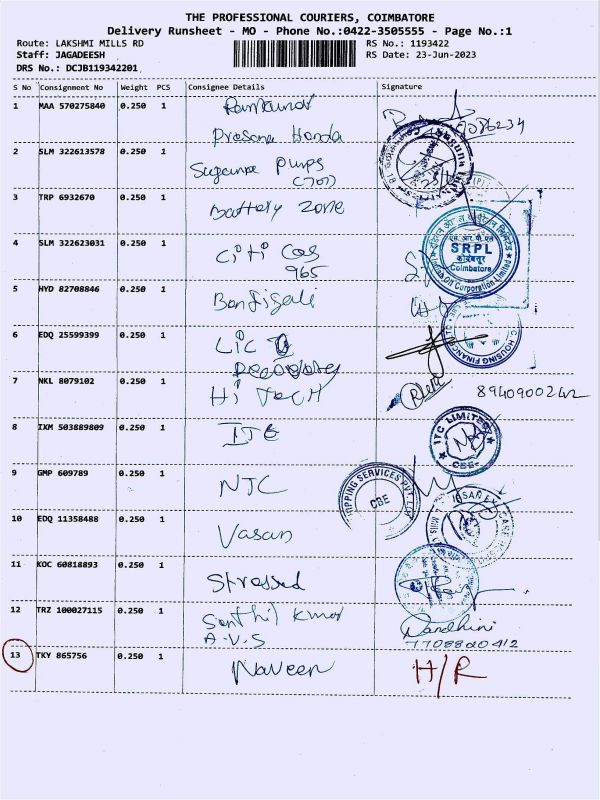 THE PROFESSIONAL COURIERS, COIMBATORE
Delivery Runsheet - MO - Phone No.:0422-3505555 - Page No.:1
Route: LAKSHMI MILLS RD
RS No.: 1193422
Staff: JAGADEESH
RS Date: 23-Jun-2023
DRS No.: DCJB119342201
S No Consignment No Weight PCS Consignee Details Signature
1 MAA 570275840 0.250 1
Honda
2 SLM 322613578 0.250 1
Pumps
3 TRP 6932670 0.250 1 Battery Zone
4 SLM 322623031 0.250 1 Citi Gas
965
SRPL
कोयंबत्तूर
Coimbatore
Indian Oil Corporation Limited
5 HYD 82708846 0.250 1
6 EDQ 25599399 0.250 1 LIC
HOUSING FINANCE LTD
7 NKL 8079102 0.250 1 Hi Tech 8940900242
8 IXM 503889809 0.250 1 ITC
ITC LIMITED
CBE
9 GMP 609789 0.250 1 NTC
SHIPPING SERVICES PVT. LTD
CBE
10 EDQ 11358488 0.250 1 Vasan
11 KOC 60818893 0.250 1 Stressed
12 TRZ 100027115 0.250 1 Senthil Kmar
A.V.S
Nandhini
7708800412
13 TKY 865756 0.250 1 Naveen H/R